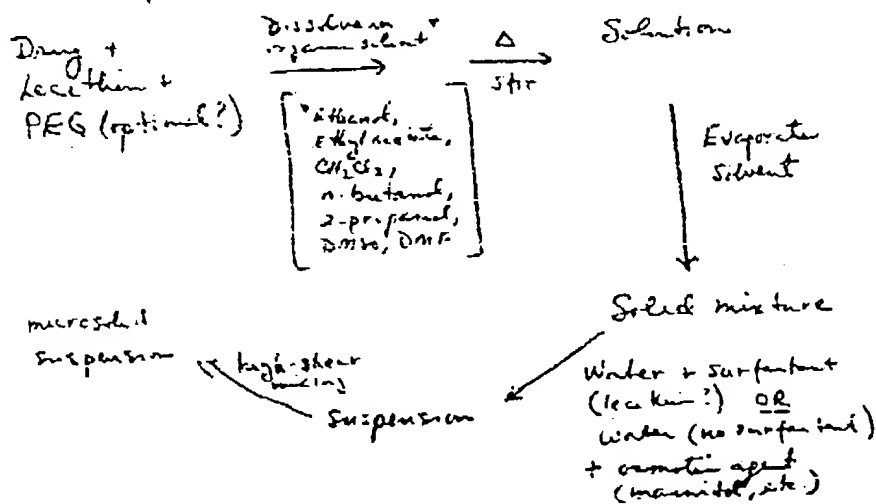 Drug +
Lecithin +
PEG (optional?)
Dissolve in
organic solvent *
* Ethanol,
Ethyl acetate,
CH2Cl2,
n-butanol,
2-propanol,
DMSO, DMF
Δ
stir
Solution
Evaporate
Solvent
Solid mixture
Water + surfactant
(lecithin?) OR
water (no surfactant)
+ osmotic agent
(mannitol, etc.)
suspension
high-shear
mixing
microsolid
suspension